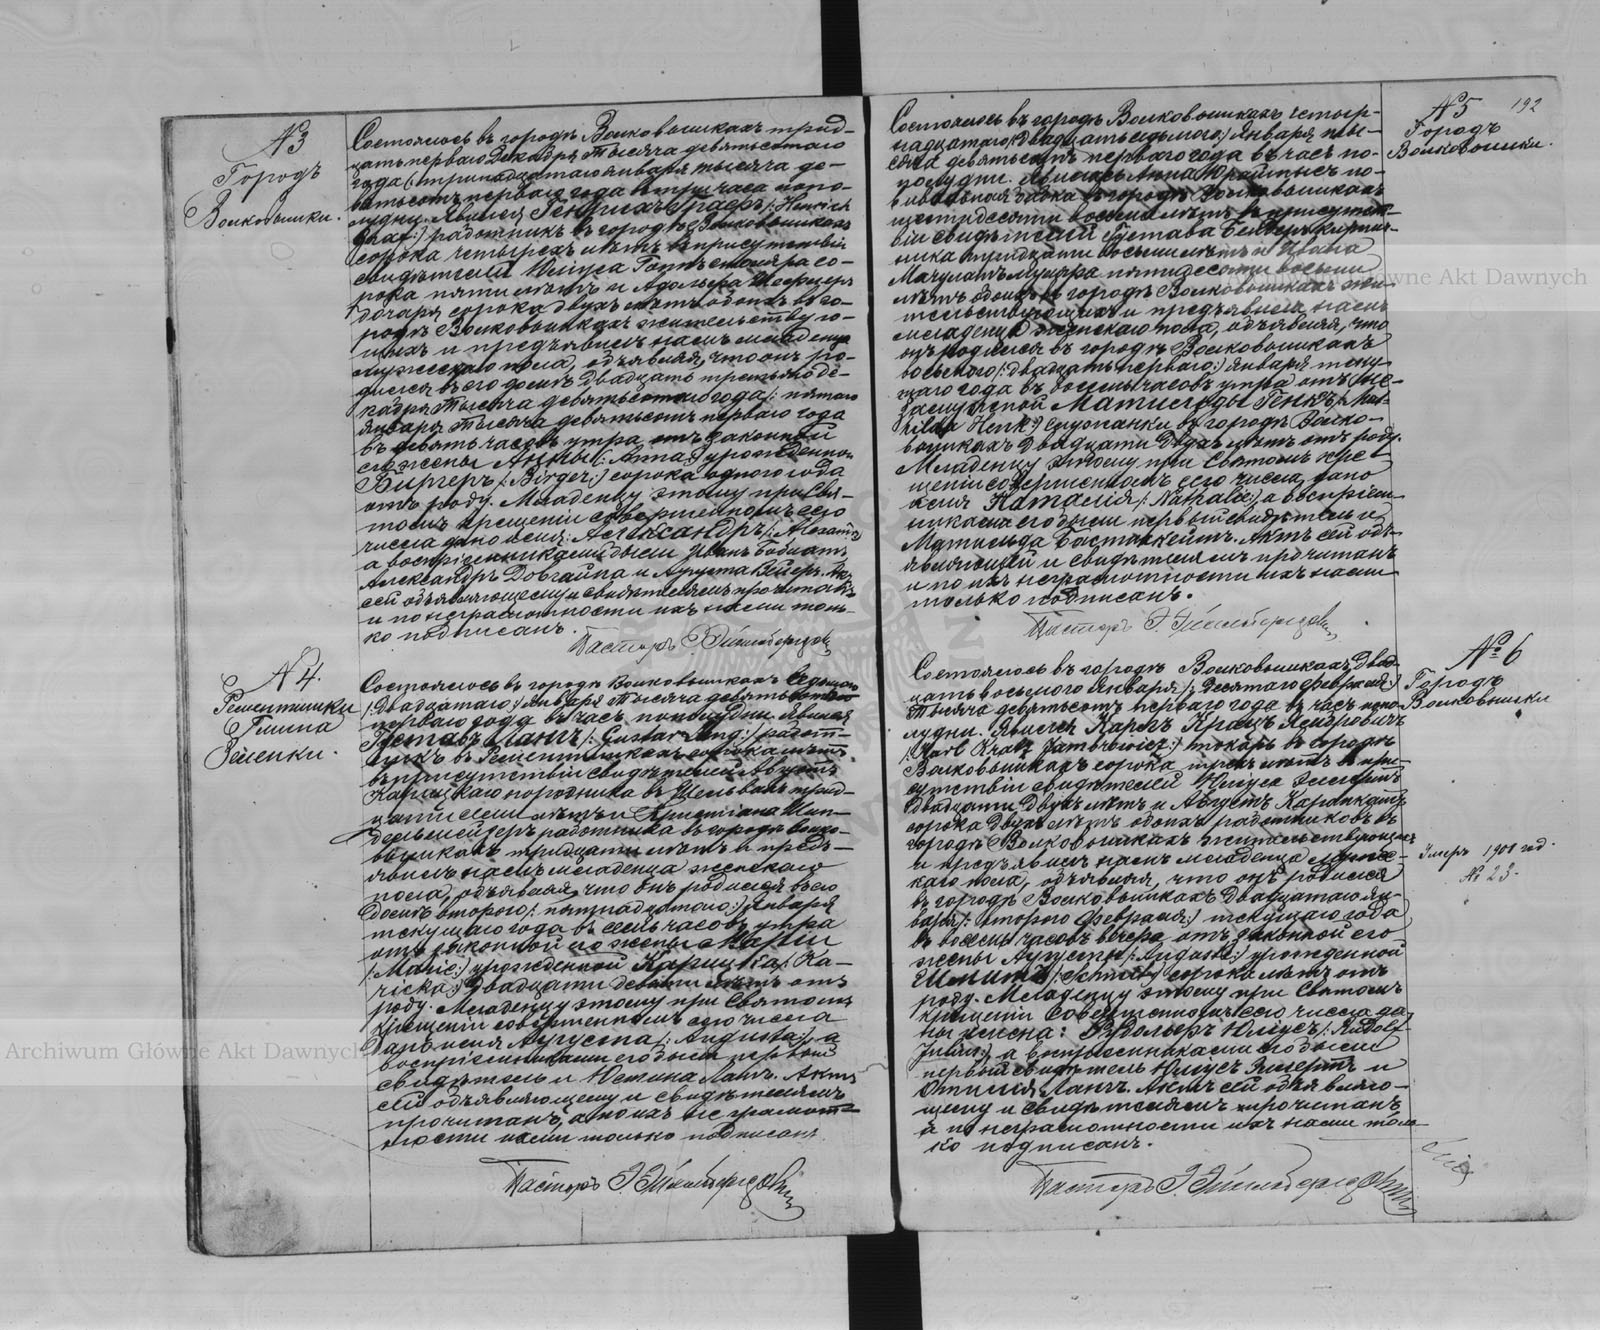 №3
Городъ
Волковышки.
Состоялось въ городѣ Волковышкахъ трид-
цать перваго Декабря Тысяча девятьсотаго
года (: тринадцатаго Января тысяча де-
вятьсотъ перваго года въ три часа попо-
лудни. Явился Генрихъ Графъ /: Henrich
Graf:/ работникъ въ городѣ Волковышкахъ
сорока четырехъ лѣтъ въ присутствіи
свидѣтелей Юліуса Готтъ столяра со-
рока пяти лѣтъ и Адольфа Шефлеръ
сорока двухъ лѣтъ обоихъ въ го-
родѣ Волковышкахъ жительствую-
щихъ и предъявилъ намъ младенца
мужескаго пола, объявляя, что онъ ро-
дился въ его домѣ двадцать третьяго де-
кабря Тысяча девятьсотаго года /: пятаго
Января Тысяча девятьсотъ перваго года
въ девять часовъ утра отъ законной
его жены Анны /: Anna:/ урожденной
Биргеръ /: Birger:/ сорока одного года
отъ роду. Младенцу этому при Свя-
томъ крещеніи совершенномъ сего
числа дано имя: Александръ /: Alexander
а воспріемниками были Иванъ
Александръ Довгайла и Августа Бейеръ. Актъ
сей объявляющему и свидѣтелямъ прочитанъ
и по неграмотности ихъ нами толь-
ко подписанъ.
Пасторъ
№4.
Рементишки
Гмина
Зеленки.
Состоялось въ городѣ Волковышкахъ седьмаго
/: Двадцатаго:/ Января Тысяча девятьсотъ
перваго года въ часъ пополудни. Явился
Густавъ Лангъ /: Gustav Lang:/ работ-
никъ въ Рементишкахъ сорока лѣтъ
въ присутствіи свидѣтелей Августа
Карицкаго огородника въ Шельвахъ трид-
цати семи лѣтъ и Христіана Шин-
дельмейстеръ работника въ городѣ Волко-
вышкахъ тридцати лѣтъ и предъ-
явилъ намъ младенца женскаго
пола, объявляя, что онъ родился въ его
домѣ втораго /: пятнадцатаго:/ Января
текущаго года въ семь часовъ утра
отъ законной его жены Маріи
/: Marie:/ урожденной Карицка /: Ka-
ricka:/ двадцати девяти лѣтъ отъ
роду. Младенцу этому при Святомъ
крещеніи совершенномъ сего числа
дано имя Августа /: Augusta:/, а
воспріемниками его были первый
свидѣтель и Юстина Лангъ. Актъ
сей объявляющему и свидѣтелямъ
прочитанъ, а по ихъ неграмот-
ности нами только подписанъ.
Пасторъ
192
№5
Городъ
Волковышки.
Состоялось въ городѣ Волковышкахъ четыр-
надцатаго /: двадцать седьмого:/ Января ты-
сяча девятьсотъ перваго года въ часъ по-
полудни. Явилась Анна Юрайтисъ по-
вивальная бабка въ городѣ Волковышкахъ
шестидесяти восьми лѣтъ въ присутст-
віи свидѣтелей Густава Бейеръ кирпич-
ника тридцати восьми лѣтъ и Ивана
Мачулатъ муляра пятидесяти восьми
лѣтъ обоихъ въ городѣ Волковышкахъ жи-
тельствующихъ и предъявила намъ
младенца женскаго пола, объявляя, что
онъ родился въ городѣ Волковышкахъ
восьмого /: двадцать перваго:/ Января теку-
щаго года въ восемь часовъ утра отъ не-
замужней Матильды Генкъ /: Mat-
hilda Henk:/ служанки въ городѣ Волко-
вышкахъ двадцати двухъ лѣтъ отъ роду.
Младенцу этому при Святомъ кре-
щеніи совершенномъ сего числа, дано
имя Наталія /: Nathalie:/, а воспріем-
никами его были первый свидѣтель и
Матильда Бастанкейтъ. Актъ сей объ-
являющей и свидѣтелямъ прочитанъ
и по ихъ неграмотности нами
только подписанъ.
Пасторъ
№6
Городъ
Волковышки
Состоялось въ городѣ Волковышкахъ Двад-
цать восьмого Января /: Десятаго Февраля:/
Тысяча девятьсотъ перваго года въ часъ попо-
лудни. Явился Карлъ Крацъ Ямбровичъ
/: Karl Kratz Jambrowicz:/ токарь въ городѣ
Волковышкахъ сорока трехъ лѣтъ въ при-
сутствіи свидѣтелей Юліуса
двадцати двухъ лѣтъ и Августъ
сорока двухъ лѣтъ обоихъ работниковъ въ
городѣ Волковышкахъ жительствующихъ
и предъявилъ намъ младенца мужес-
каго пола, объявляя, что онъ родился
въ городѣ Волковышкахъ Двадцатаго Ян-
варя /: втораго Февраля:/ текущаго года
въ восемь часовъ вечера отъ законной его
жены Августы /: Auguste:/ урожденной
Шмидтъ /: Schmidt:/ сорока лѣтъ отъ
роду. Младенцу этому при Святомъ
крещеніи совершенномъ сего числа да-
ны имена: Рудольфъ Юліусъ /: Rudolf
Julius:/, а воспріемниками его были
первый свидѣтель Юліусъ и
Оттилія Лангъ. Актъ сей объявляю-
щему и свидѣтелямъ прочитанъ,
а по неграмотности ихъ нами толь-
ко подписанъ.
Пасторъ
Умеръ 1901 год.
№ 23.
Archiwum Główne Akt Dawnych
Główne Akt Dawnych